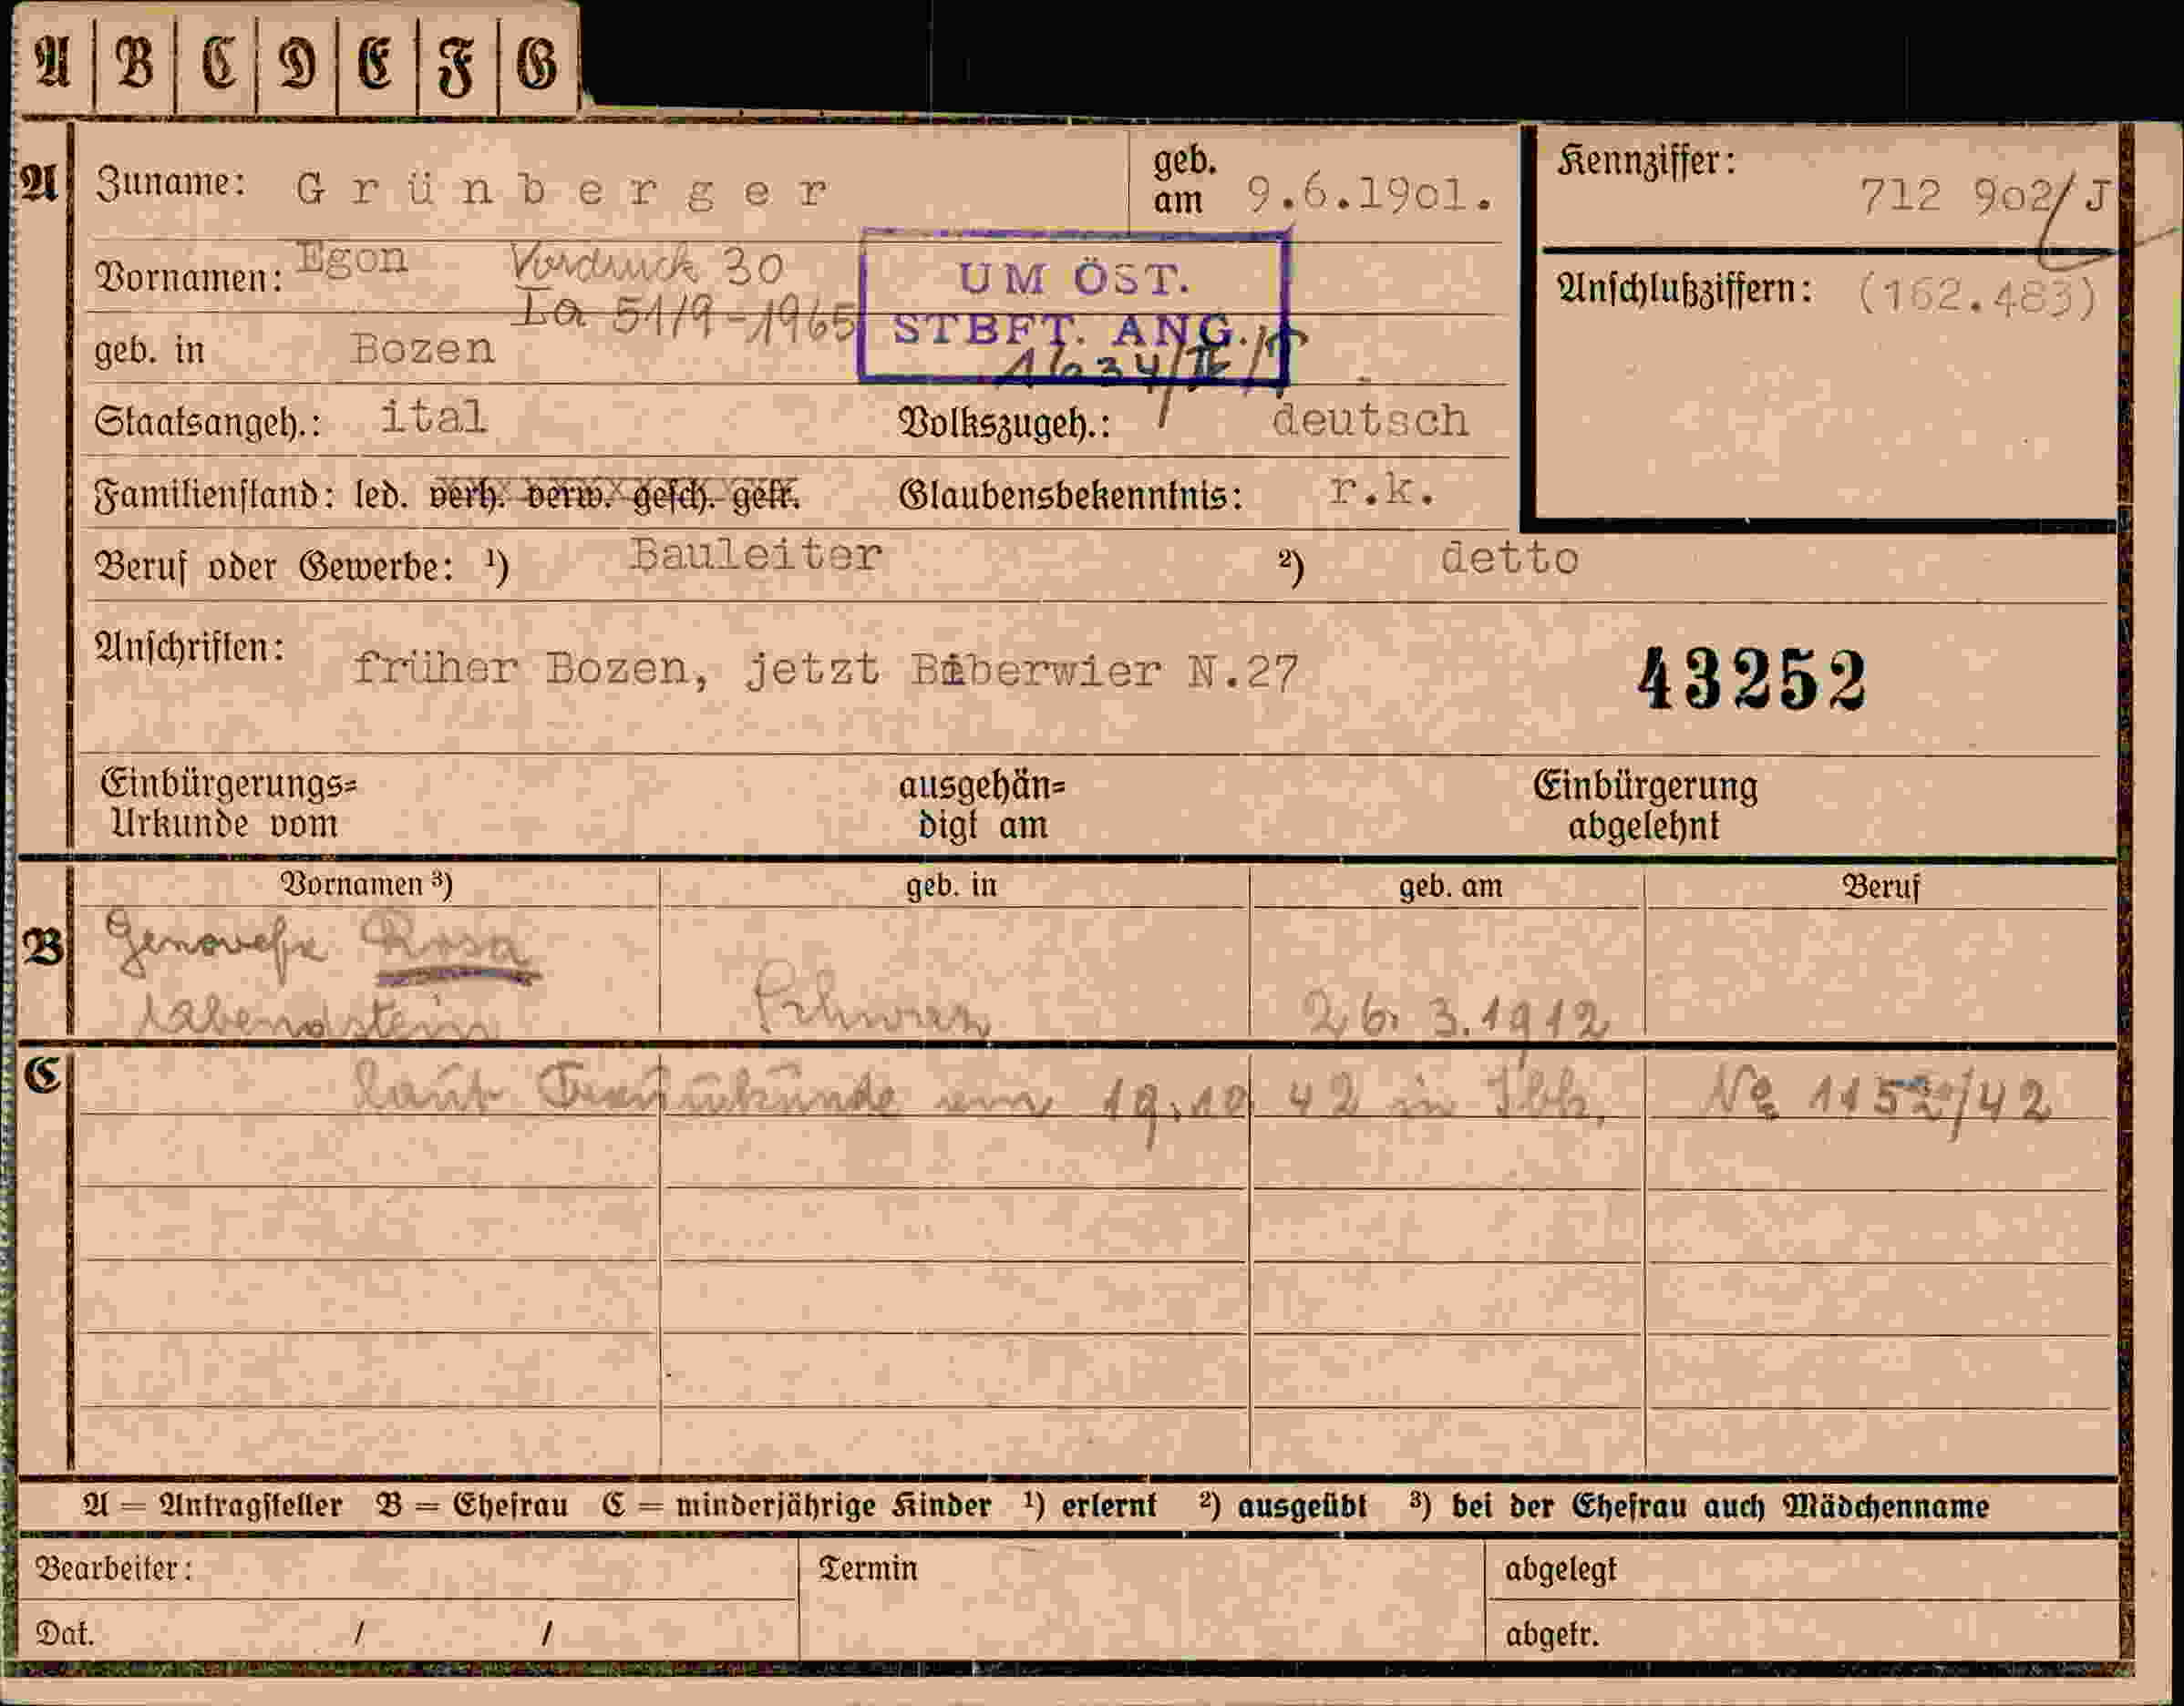 A B C D E F G
A Zuname: Grünberger geb. am 9.6.1901. Kennziffer: 712 902/J
Vornamen: Egon Vordruck 30 UM ÖST. Anschlußziffern: (162.483)
Ia 51/9-1965 STBFT. ANG.
geb. in Bozen
Staatsangeh.: ital Volkszugeh.: deutsch
Familienstand: led. verh. verw. gesch. getr. Glaubensbekenntnis: r.k.
Beruf oder Gewerbe: ¹) Bauleiter ²) detto
Anschriften: früher Bozen, jetzt Biberwier N.27 43252
Einbürgerungs= ausgehän= Einbürgerung
Urkunde vom digt am abgelehnt
Vornamen ³) geb. in geb. am Beruf
B Genovefa Rosa
Schwaz 26. 3. 1912
C laut Trauurkunde vom 19.10 42 in Ibk. No 1152/42
A = Antragsteller B = Ehefrau C = minderjährige Kinder ¹) erlernt ²) ausgeübt ³) bei der Ehefrau auch Mädchenname
Bearbeiter: Termin abgelegt
Dat. / / abgetr.